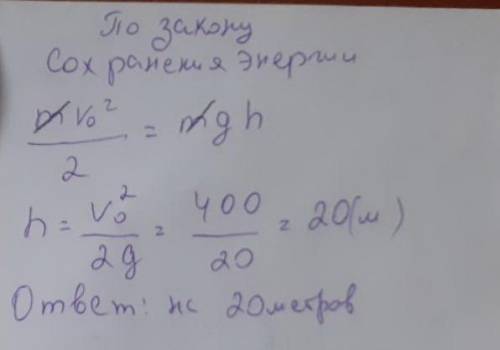 По закону
Сохранения энергии
mv₀²/2 = mgh
h = v₀²/2g = 400/20 = 20(м)
Ответ: на 20метров